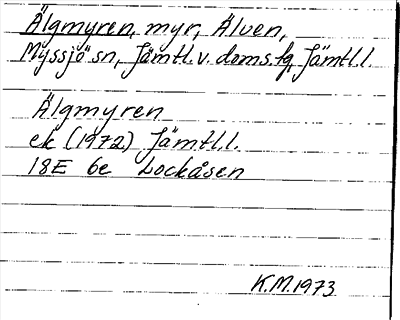 Älgmyren, myr, Älven,
Myssjö sn, Jämtl. v. doms.fg, Jämtl.l.
Älgmyren
ek (1972) Jämtl.l.
18E 6e Lockåsen
K.M.1973